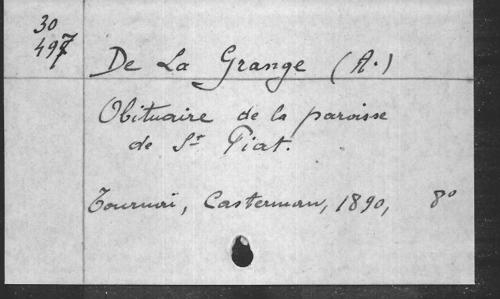 30
497
De La Grange (A.)
Obituaire de la paroisse
de St Piat.
Tournai, Casterman, 1890, 8°